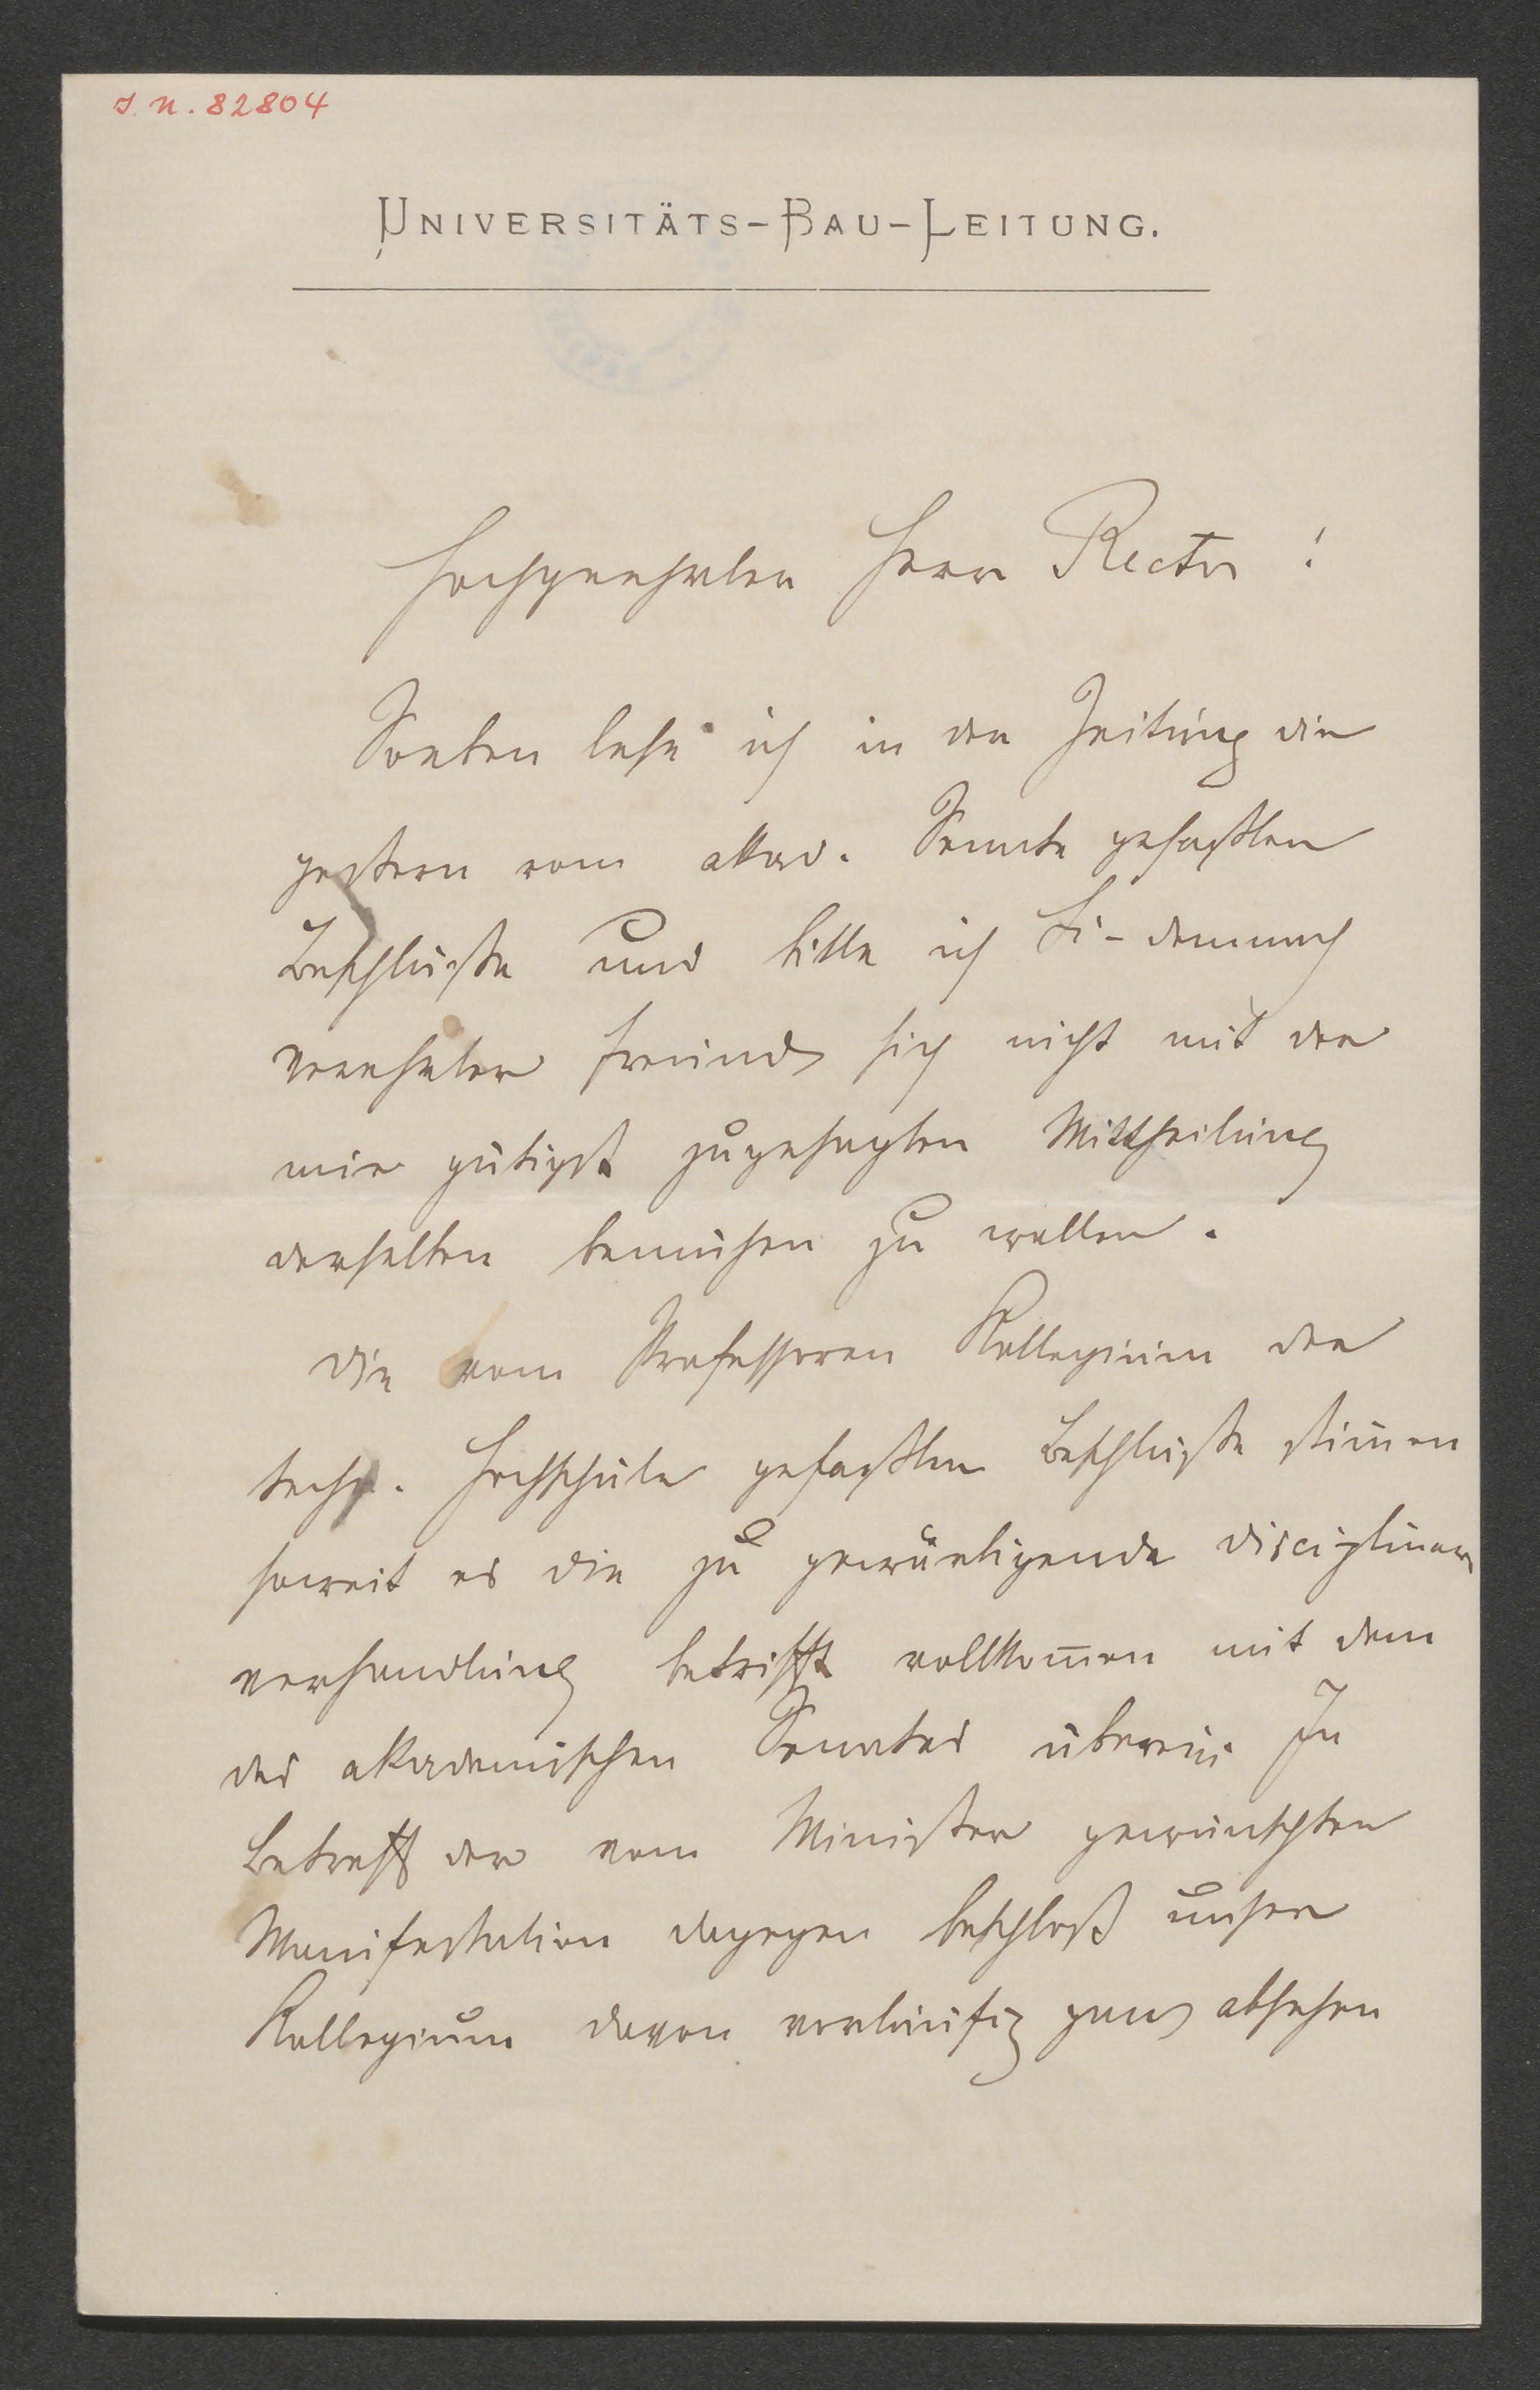 J. N. 82804
UNIVERSITÄTS-BAU-LEITUNG.
Hochgeehrter Herr Rector!
Soeben lese ich in der Zeitung die
gestern vom akad. Senate gefaßten
Beschlüsse und bitte ich Si- demnach
verehrter Freund sich nicht mit der
mir gütigst zugesagten Mittheilung
derselben bemühen zu wollen.
Die vom Professoren Kollegium der
techn. Hochschule gefaßten Beschlüße stim̄en
soweit es die zu gewärtigende Disciplinar
verhandlung betrifft vollkom̄en mit dem
des akademischen Senates überein. In
Betreff der vom Minister gewünschten
Manifestation dagegen beschloß unser
Kollegium davon vorläufig ganz absehen